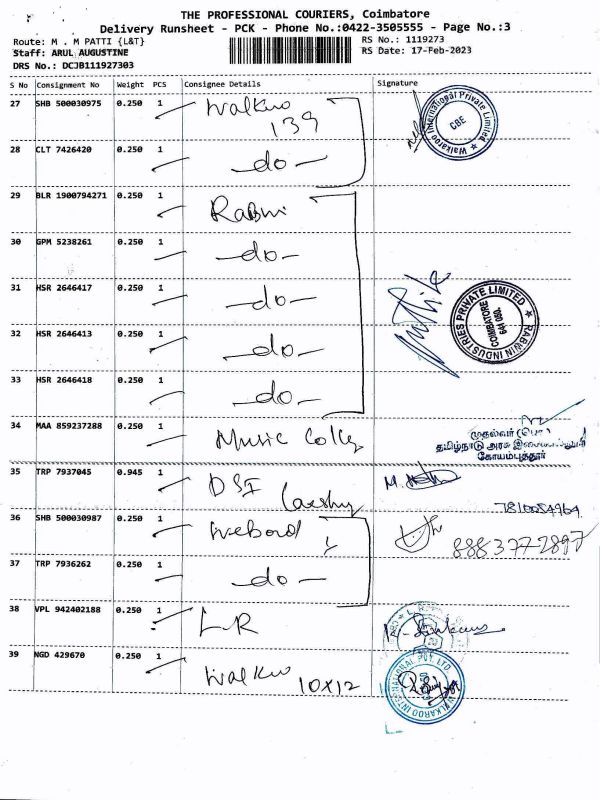 THE PROFESSIONAL COURIERS, Coimbatore
Delivery Runsheet - PCK - Phone No.:0422-3505555 - Page No.:3
Route: M . M PATTI {L&T}
RS No.: 1119273
Staff: ARUL AUGUSTINE
RS Date: 17-Feb-2023
DRS No.: DCJB111927303
S No Consignment No Weight PCS Consignee Details Signature
27 SHB 500030975 0.250 1 Walkw 139
Walkaroo International Private Limited CBE
28 CLT 7426420 0.250 1 -do-
29 BLR 1900794271 0.250 1 Rabwi
30 GPM 5238261 0.250 1 -do-
31 HSR 2646417 0.250 1 -do-
RABWIN INDUSTRIES PRIVATE LIMITED COIMBATORE
32 HSR 2646413 0.250 1 -do-
33 HSR 2646418 0.250 1 -do-
34 MAA 859237288 0.250 1 Music Colleg
முதல்வர்
தமிழ்நாடு அரசு
கோயம்புத்தூர்
35 TRP 7937045 0.945 1 DSI
7810084964
36 SHB 500030987 0.250 1 Webord
8883772897
37 TRP 7936262 0.250 1 -do-
38 VPL 942402188 0.250 1 LR
39 NGD 429670 0.250 1 Walkw 10x12
WALKAROO INTERNATIONAL PVT. LTD